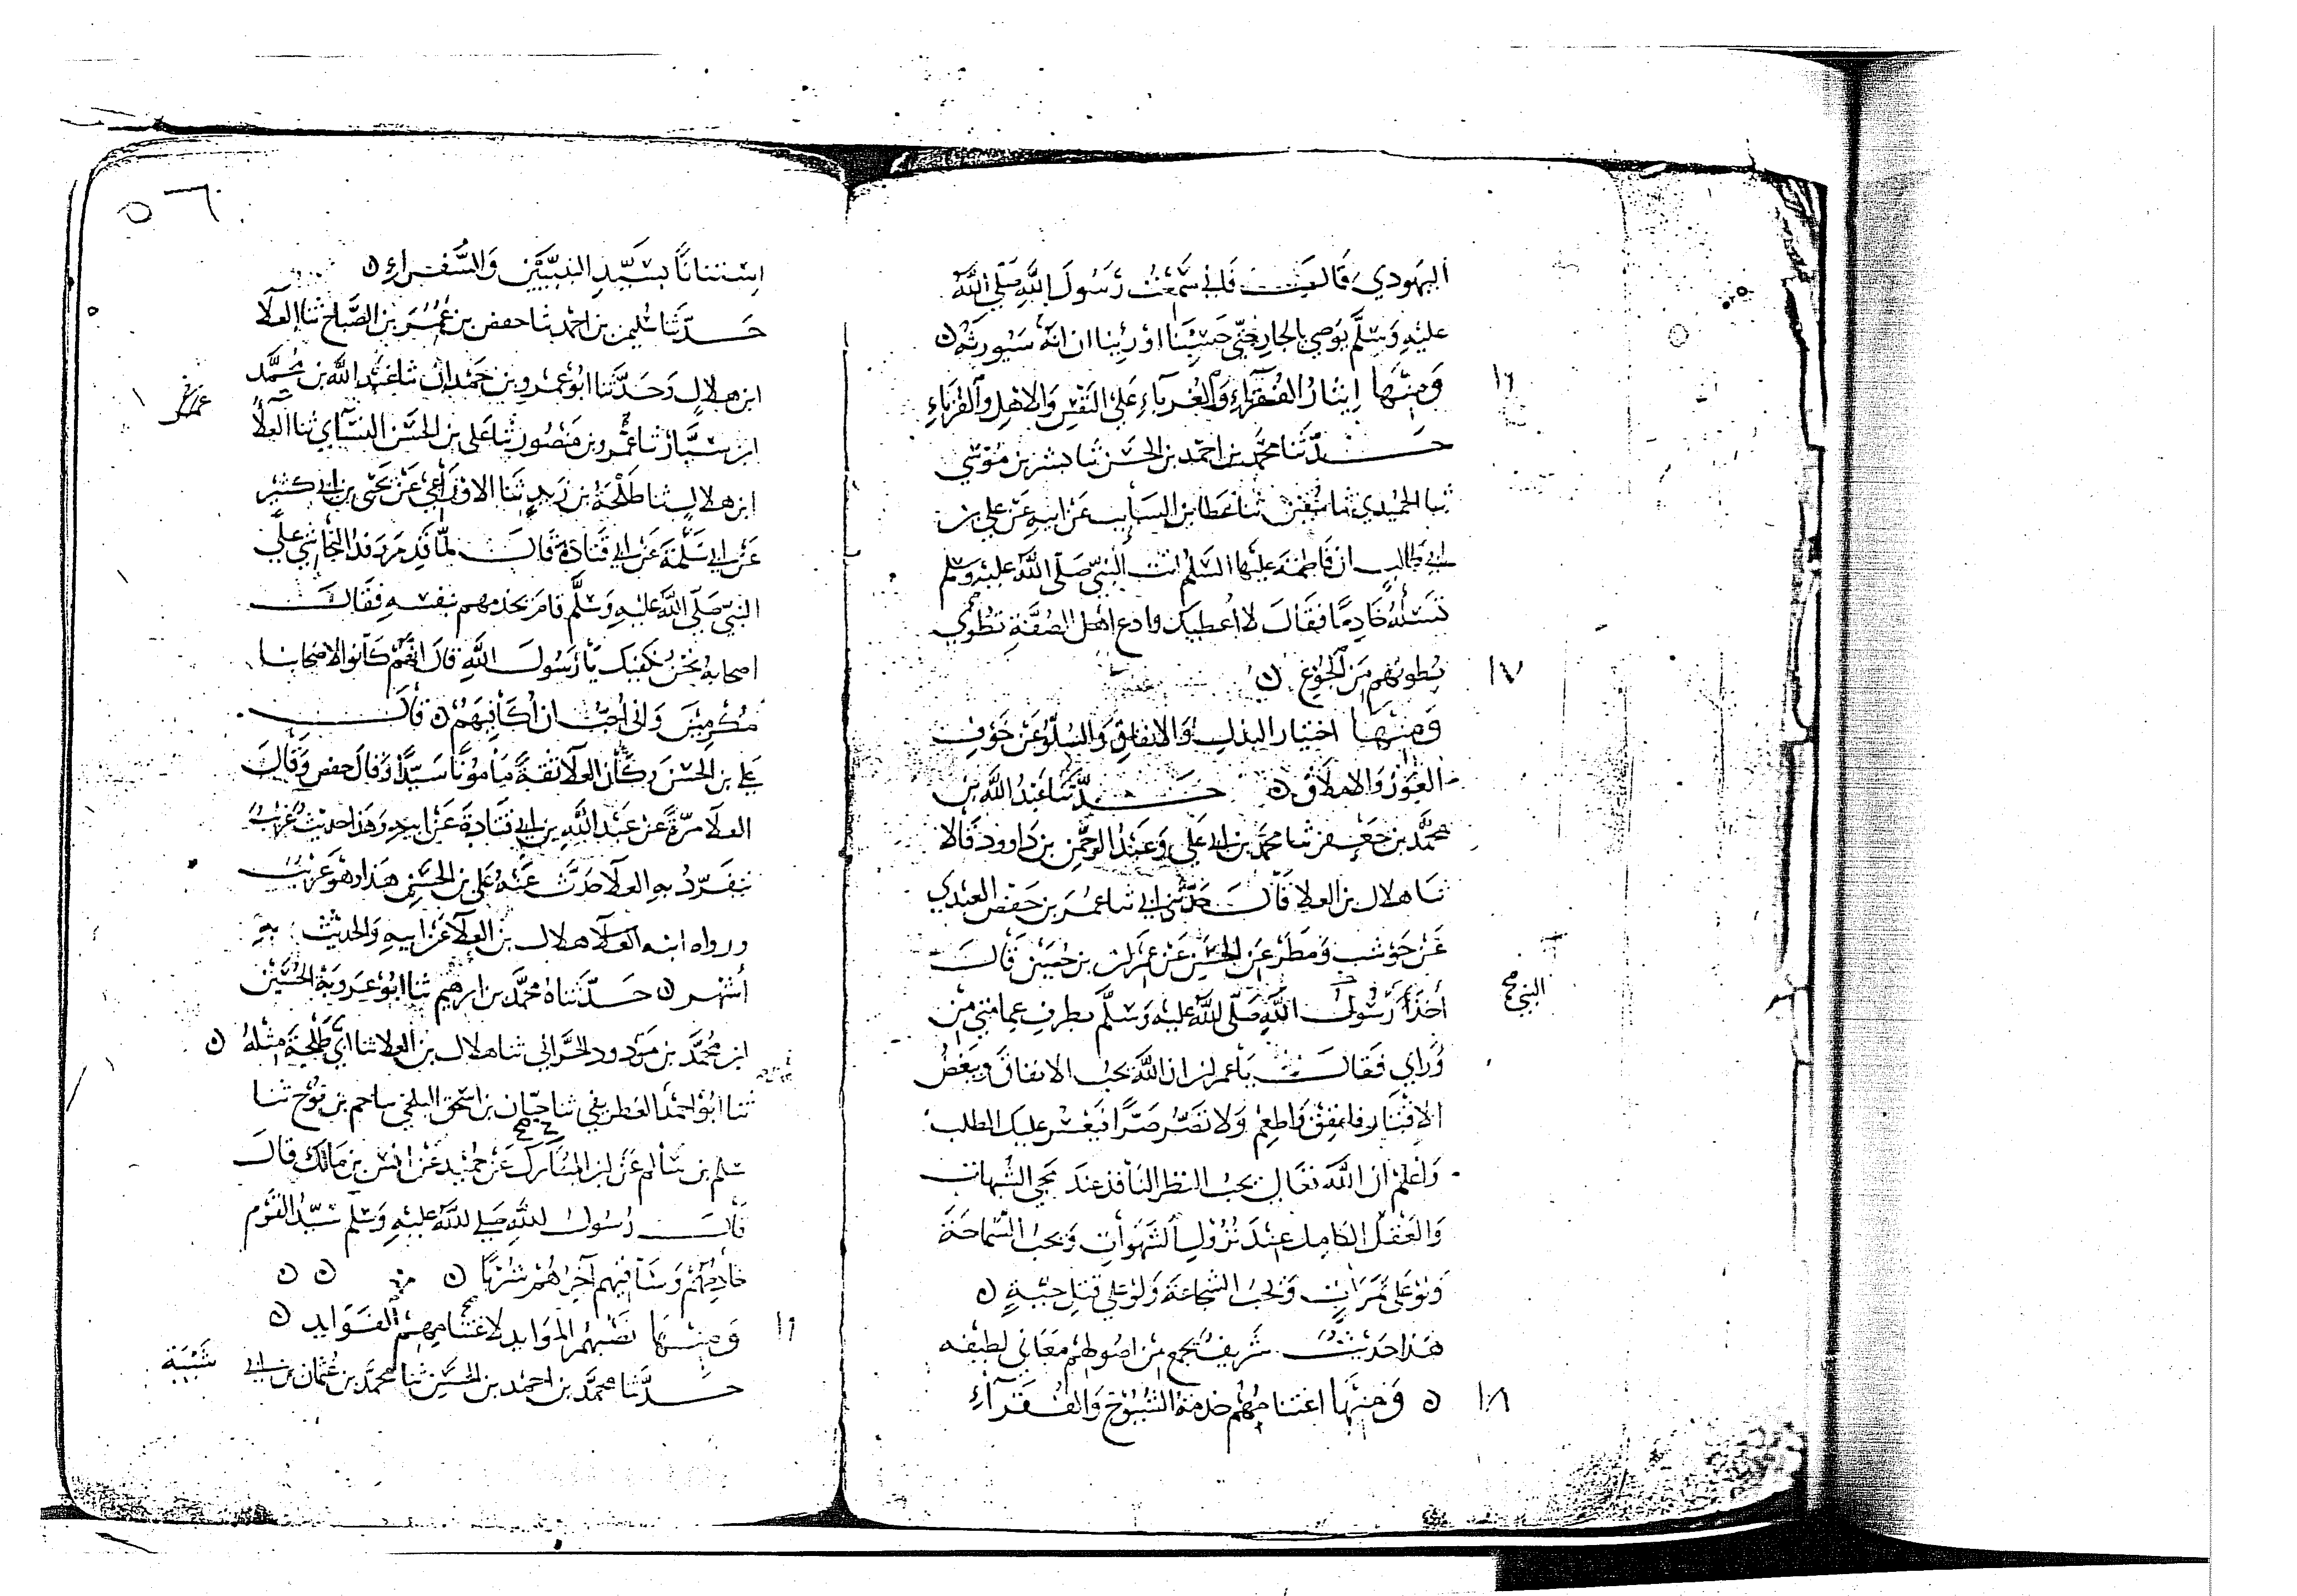 اليهودي قالت فاني سمعت رسول الله صلى الله
عليه وسلم يوصي بالجار حتى حسبنا او رئينا ان انه سيورثه ه
١٦
ومنها إيثار الفقراء والغرباء على النفس والاهل والقرباء
حدثنا محمد بن احمد بن الحسن ثنا بشر بن موسى
ثنا الحميدي ثنا سفين ثنا عطا بن السايب عن ابيه عن علي بن
ابي طالب ان فاطمة عليها السلم اتت النبي صلى الله عليه وسلم
تسئله خادما فقال لا اعطيك وادع اهل الصفة تطوي
بطونهم من الجوع ه
١٧
ومنها اختيار البذل والانفاق والسلو عن خوف
العوز والاملاق ه حدثنا عبد الله بن
محمد بن جعفر ثنا محمد بن ابي علي وعبد الرحمن بن داوود قالا
ثنا هلال بن العلا قال حدثني ابي ثنا عمر بن حفص العبدي
عن حوشب ومطر عن الحسن عن عمران بن حصين قال
اخذ رسول الله صلى الله عليه وسلم بطرف عمامتي من
النبي
وراي فقال يا عمران ان الله يحب الانفاق ويبغض
الاقتار فانفق واطعم ولا تصر صرا فيعسر عليك الطلب
واعلم ان الله تعالى يحب النظر النافذ عند مجي الشبهات
والعقل الكامل عند نزول الشهوات ويحب السماحة
ولو على تمرات ويحب الشجاعة ولو على قتل حية ه
هذا حديث شريف يجمع من اصولهم معاني لطيفه
١٨
ه ومنها اغتنامهم خدمة الشيوخ والفقراء
٥٦
استنانا بسيد النبيين والسفراء ه
حدثنا سليمن بن احمد ثنا حفص بن عمر بن الصباح ثنا العلا
ابن هلال وحدثنا ابو عمرو بن حمدان ثنا عبد الله بن محمد
ابن سيار ثنا عمرو بن منصور ثنا علي بن الحسن النسآي ثنا العلا
ابن هلال ثنا طلحة بن زيد ثنا الاوزاعي عن يحيى بن ابي كثير
عن ابي سلمة عن ابي قتادة قال لما قدم وفد النجاشي على
النبي صلى الله عليه وسلم قام يخدمهم بنفسه فقال
اصحابه نحن نكفيك يا رسول الله قال انهم كانوا لاصحابنا
مكرمين واني احب ان اكافيهم ه قال
علي بن الحسن وكان العلا ثقة مامونا سيدا وقال حفص وقال
العلا مرة عن عبد الله بن ابي قتادة عن ابيه وهذا حديث غريب
تفرد به العلا حدث عنه علي بن الحسن هذا وهو غريب
ورواه ابنه العلا هلال بن العلا عن ابيه والحديث به
اشهر ه حدثناه محمد بن ابرهيم ثنا ابو عروبة الحسين
ابن محمد بن مودود الحراني ثنا هلال بن العلا ثنا ابي طلحة مثله ه
ثنا ابو احمد الغطريفي ثنا حيان بن اسحق البلخي ثنا حم بن نوح ثنا
سلم بن سالم عن ابن المبارك عن حميد عن انس بن مالك قال
قال رسول الله صلى الله عليه وسلم سيد القوم
خادمهم وساقيهم آخرهم شربا ه ه ه
ومنها نصبهم الموايد لاغتنامهم الفوايد ه
حدثنا محمد بن احمد بن الحسين ثنا محمد بن عثمان بن ابي شيبة